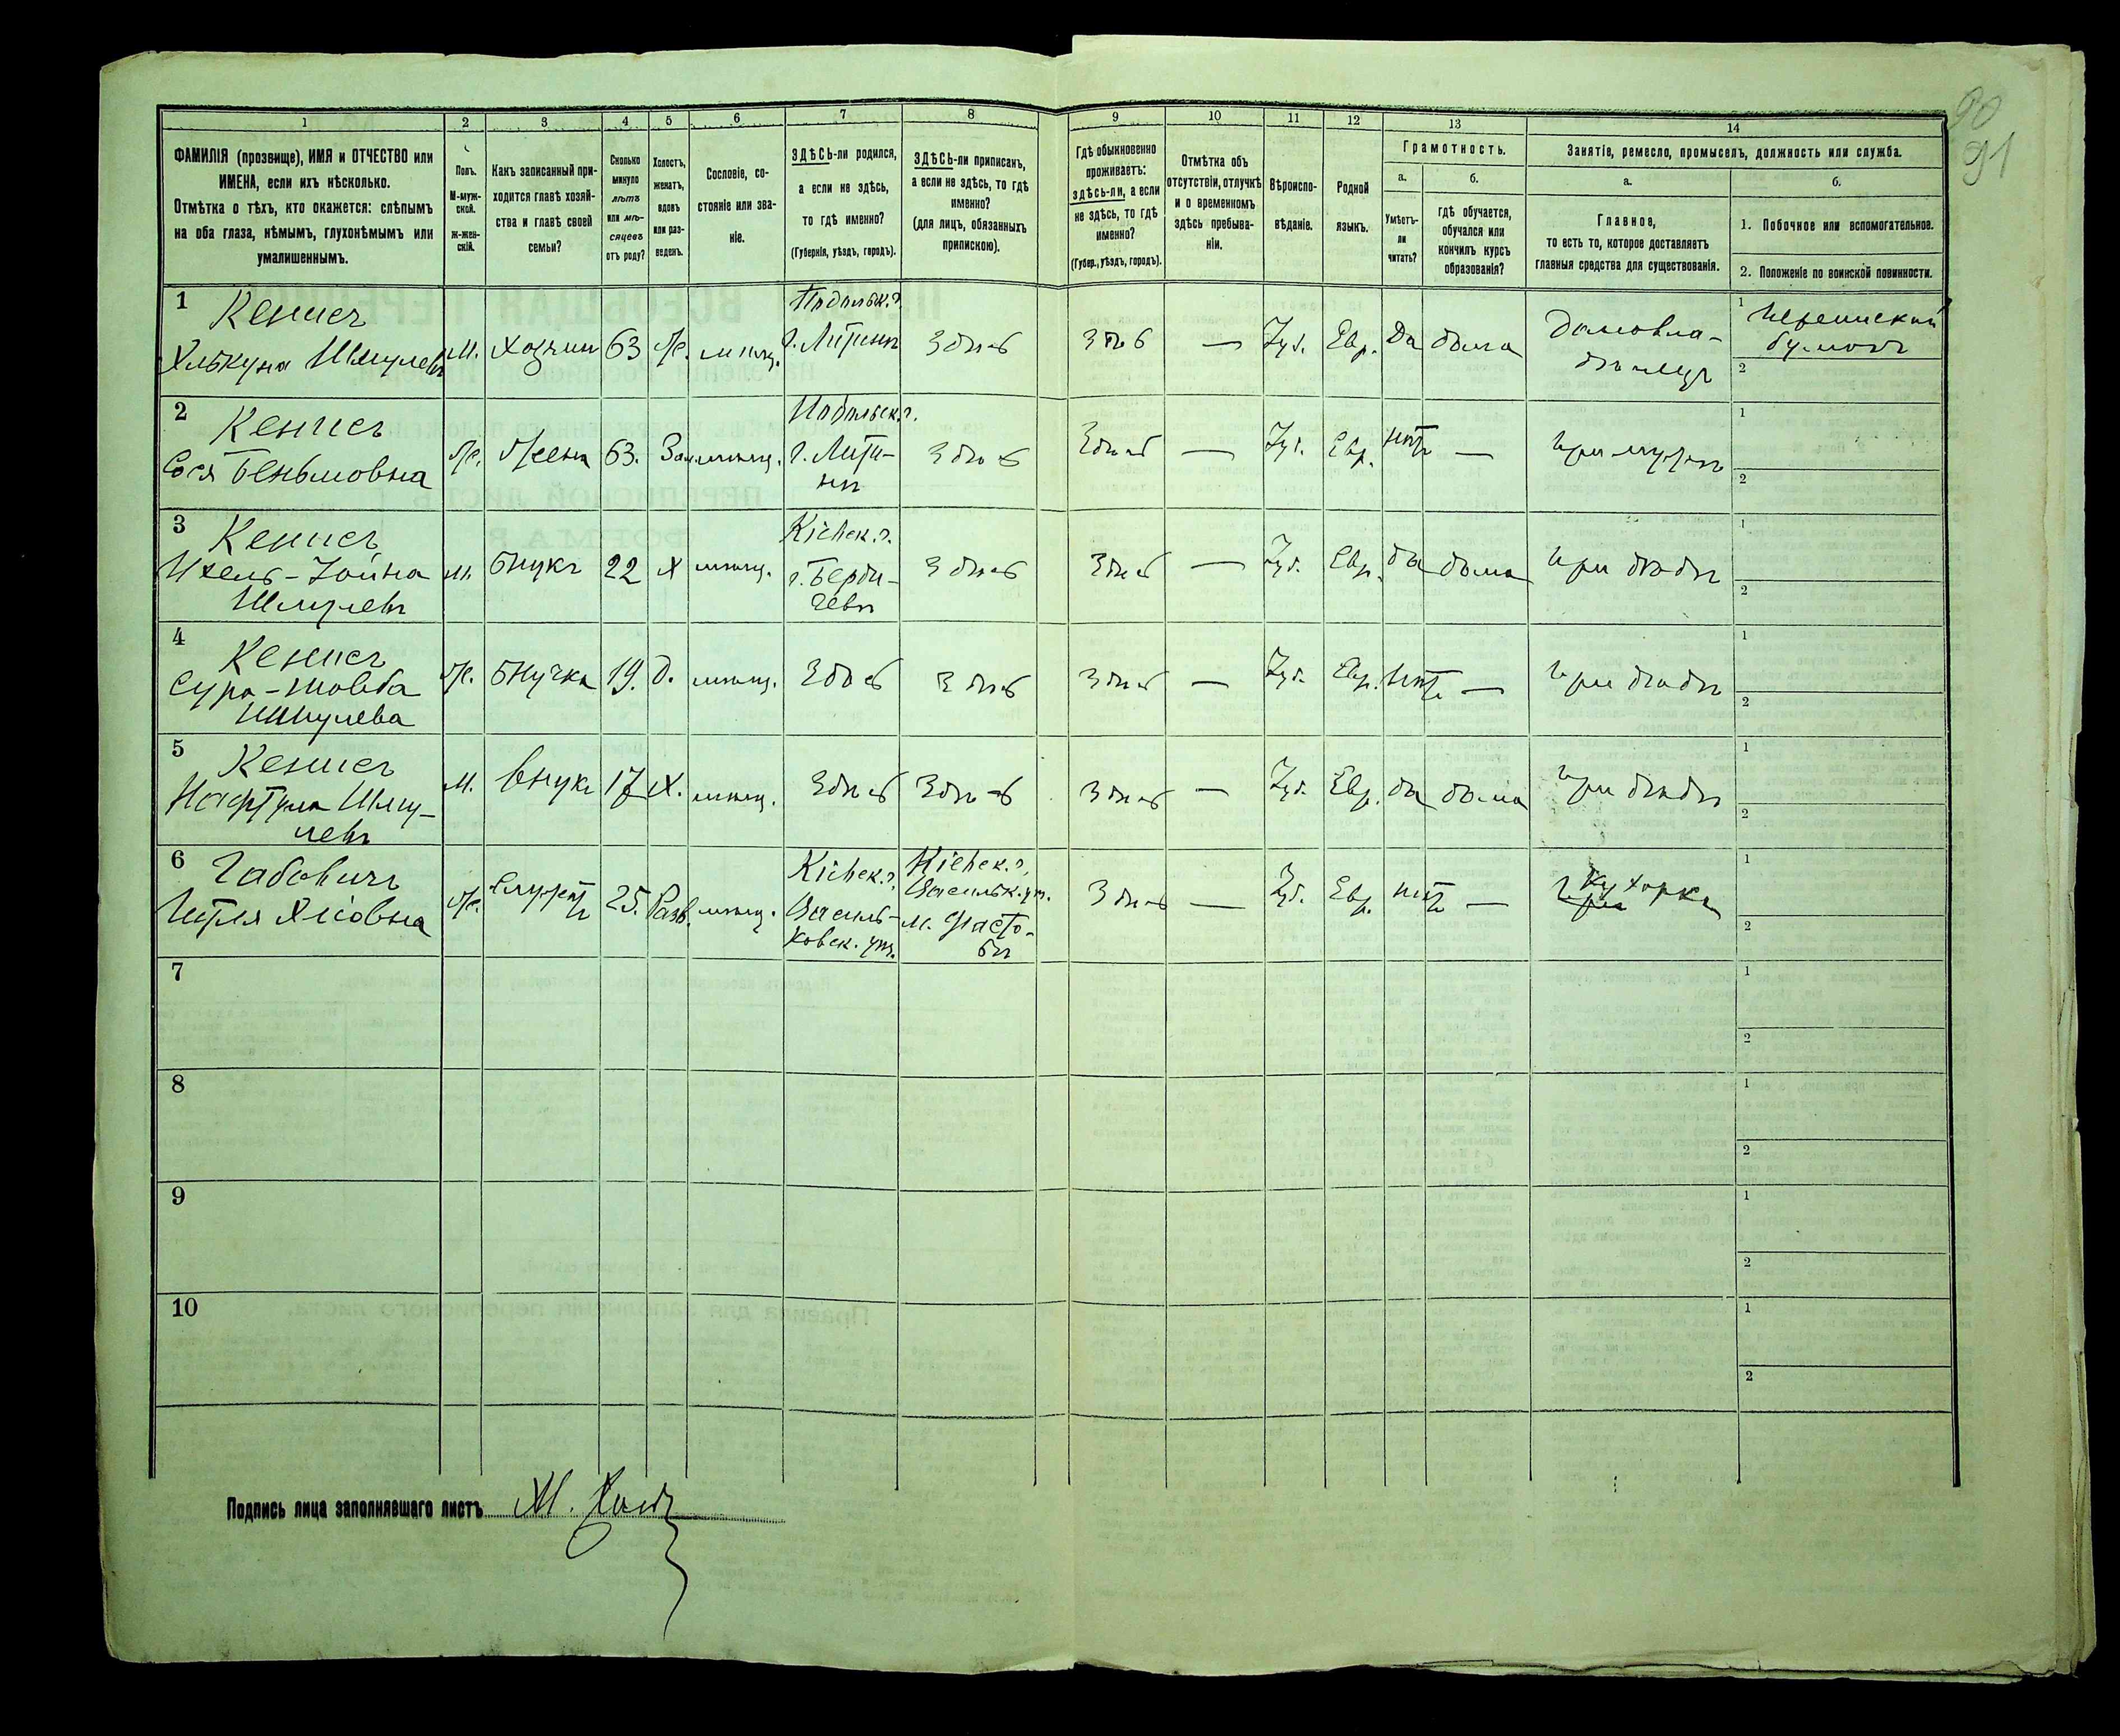 90
91
1
2
3
4
5
6
7
8
9
10
11
12
13
14
ФАМИЛІЯ (прозвище), ИМЯ и ОТЧЕСТВО или
ИМЕНА, если ихъ нѣсколько.
Отмѣтка о тѣхъ, кто окажется: слѣпымъ
на оба глаза, нѣмымъ, глухонѣмымъ или
умалишеннымъ.
Полъ.
М-муж-
ской.
ж-жен-
скій.
Какъ записанный при-
ходится главѣ хозяй-
ства и главѣ своей
семьи?
Сколько
минуло
лѣтъ
или мѣ-
сяцевъ
отъ роду?
Холостъ,
женатъ,
вдовъ
или раз-
веденъ.
Сословіе, со-
стояніе или зва-
ніе.
ЗДѢСЬ-ли родился,
а если не здѣсь,
то гдѣ именно?
(Губернія, уѣздъ, городъ).
ЗДѢСЬ-ли приписанъ,
а если не здѣсь, то гдѣ
именно?
(для лицъ, обязанныхъ
припискою).
Гдѣ обыкновенно
проживаетъ:
здѣсь-ли, а если
не здѣсь, то гдѣ
именно?
(Губер., уѣздъ, городъ).
Отмѣтка объ
отсутствіи, отлучкѣ
и о временномъ
здѣсь пребыва-
ніи.
Вѣроиспо-
вѣданіе.
Родной
языкъ.
Грамотность.
а.
Умѣетъ-
ли
читать?
б.
гдѣ обучается,
обучался или
кончилъ курсъ
образованія?
Занятіе, ремесло, промыселъ, должность или служба.
а.
Главное,
то есть то, которое доставляетъ
главныя средства для существованія.
б.
1. Побочное или вспомогательное.
2. Положеніе по воинской повинности.
1
Кенис
Шмулевъ
М.
хозяин
63
Ж.
мѣщ.
Подольск. г.
г. Литинъ
Здѣсь
Здѣсь
—
Іуд.
Евр.
Да
дома
Домовла-
дѣлец
1
2
2
Кенис
Сося Беньмовна
Ж.
Жена
63.
Зам.
мѣщ.
Подольск. г.
г. Лити-
нъ
Здѣсь
Здѣсь
—
Іуд.
Евр.
нѣтъ
—
при мужѣ
1
2
3
Кенис
Шмулевъ
М.
Внукъ
22
Х
мѣщ.
Кіевск. г.
г. Берди-
чевъ
Здѣсь
Здѣсь
—
Іуд.
Евр.
да
дома
при дѣдѣ
1
2
4
Кенис
Шмулева
Ж.
Внучка
19.
Д.
мѣщ.
Здѣсь
Здѣсь
Здѣсь
—
Іуд.
Евр.
Нѣтъ
—
при дѣдѣ
1
2
5
Кенис
Нафтула Шму-
левъ
М.
Внукъ
17
Х.
мѣщ.
Здѣсь
Здѣсь
Здѣсь
—
Іуд.
Евр.
да
дома
при дѣдѣ
1
2
6
Габович
Ж.
25.
Разв.
мѣщ.
Кіевск. г.
Василь-
ковск. уѣз.
Кіевск. г.
Васильк. уѣз.
м. Фасто-
въ
Здѣсь
—
Іуд.
Евр.
нѣтъ
—
Кухарка
1
2
7
1
2
8
1
2
9
1
2
10
1
2
Подпись лица заполнявшаго листъ